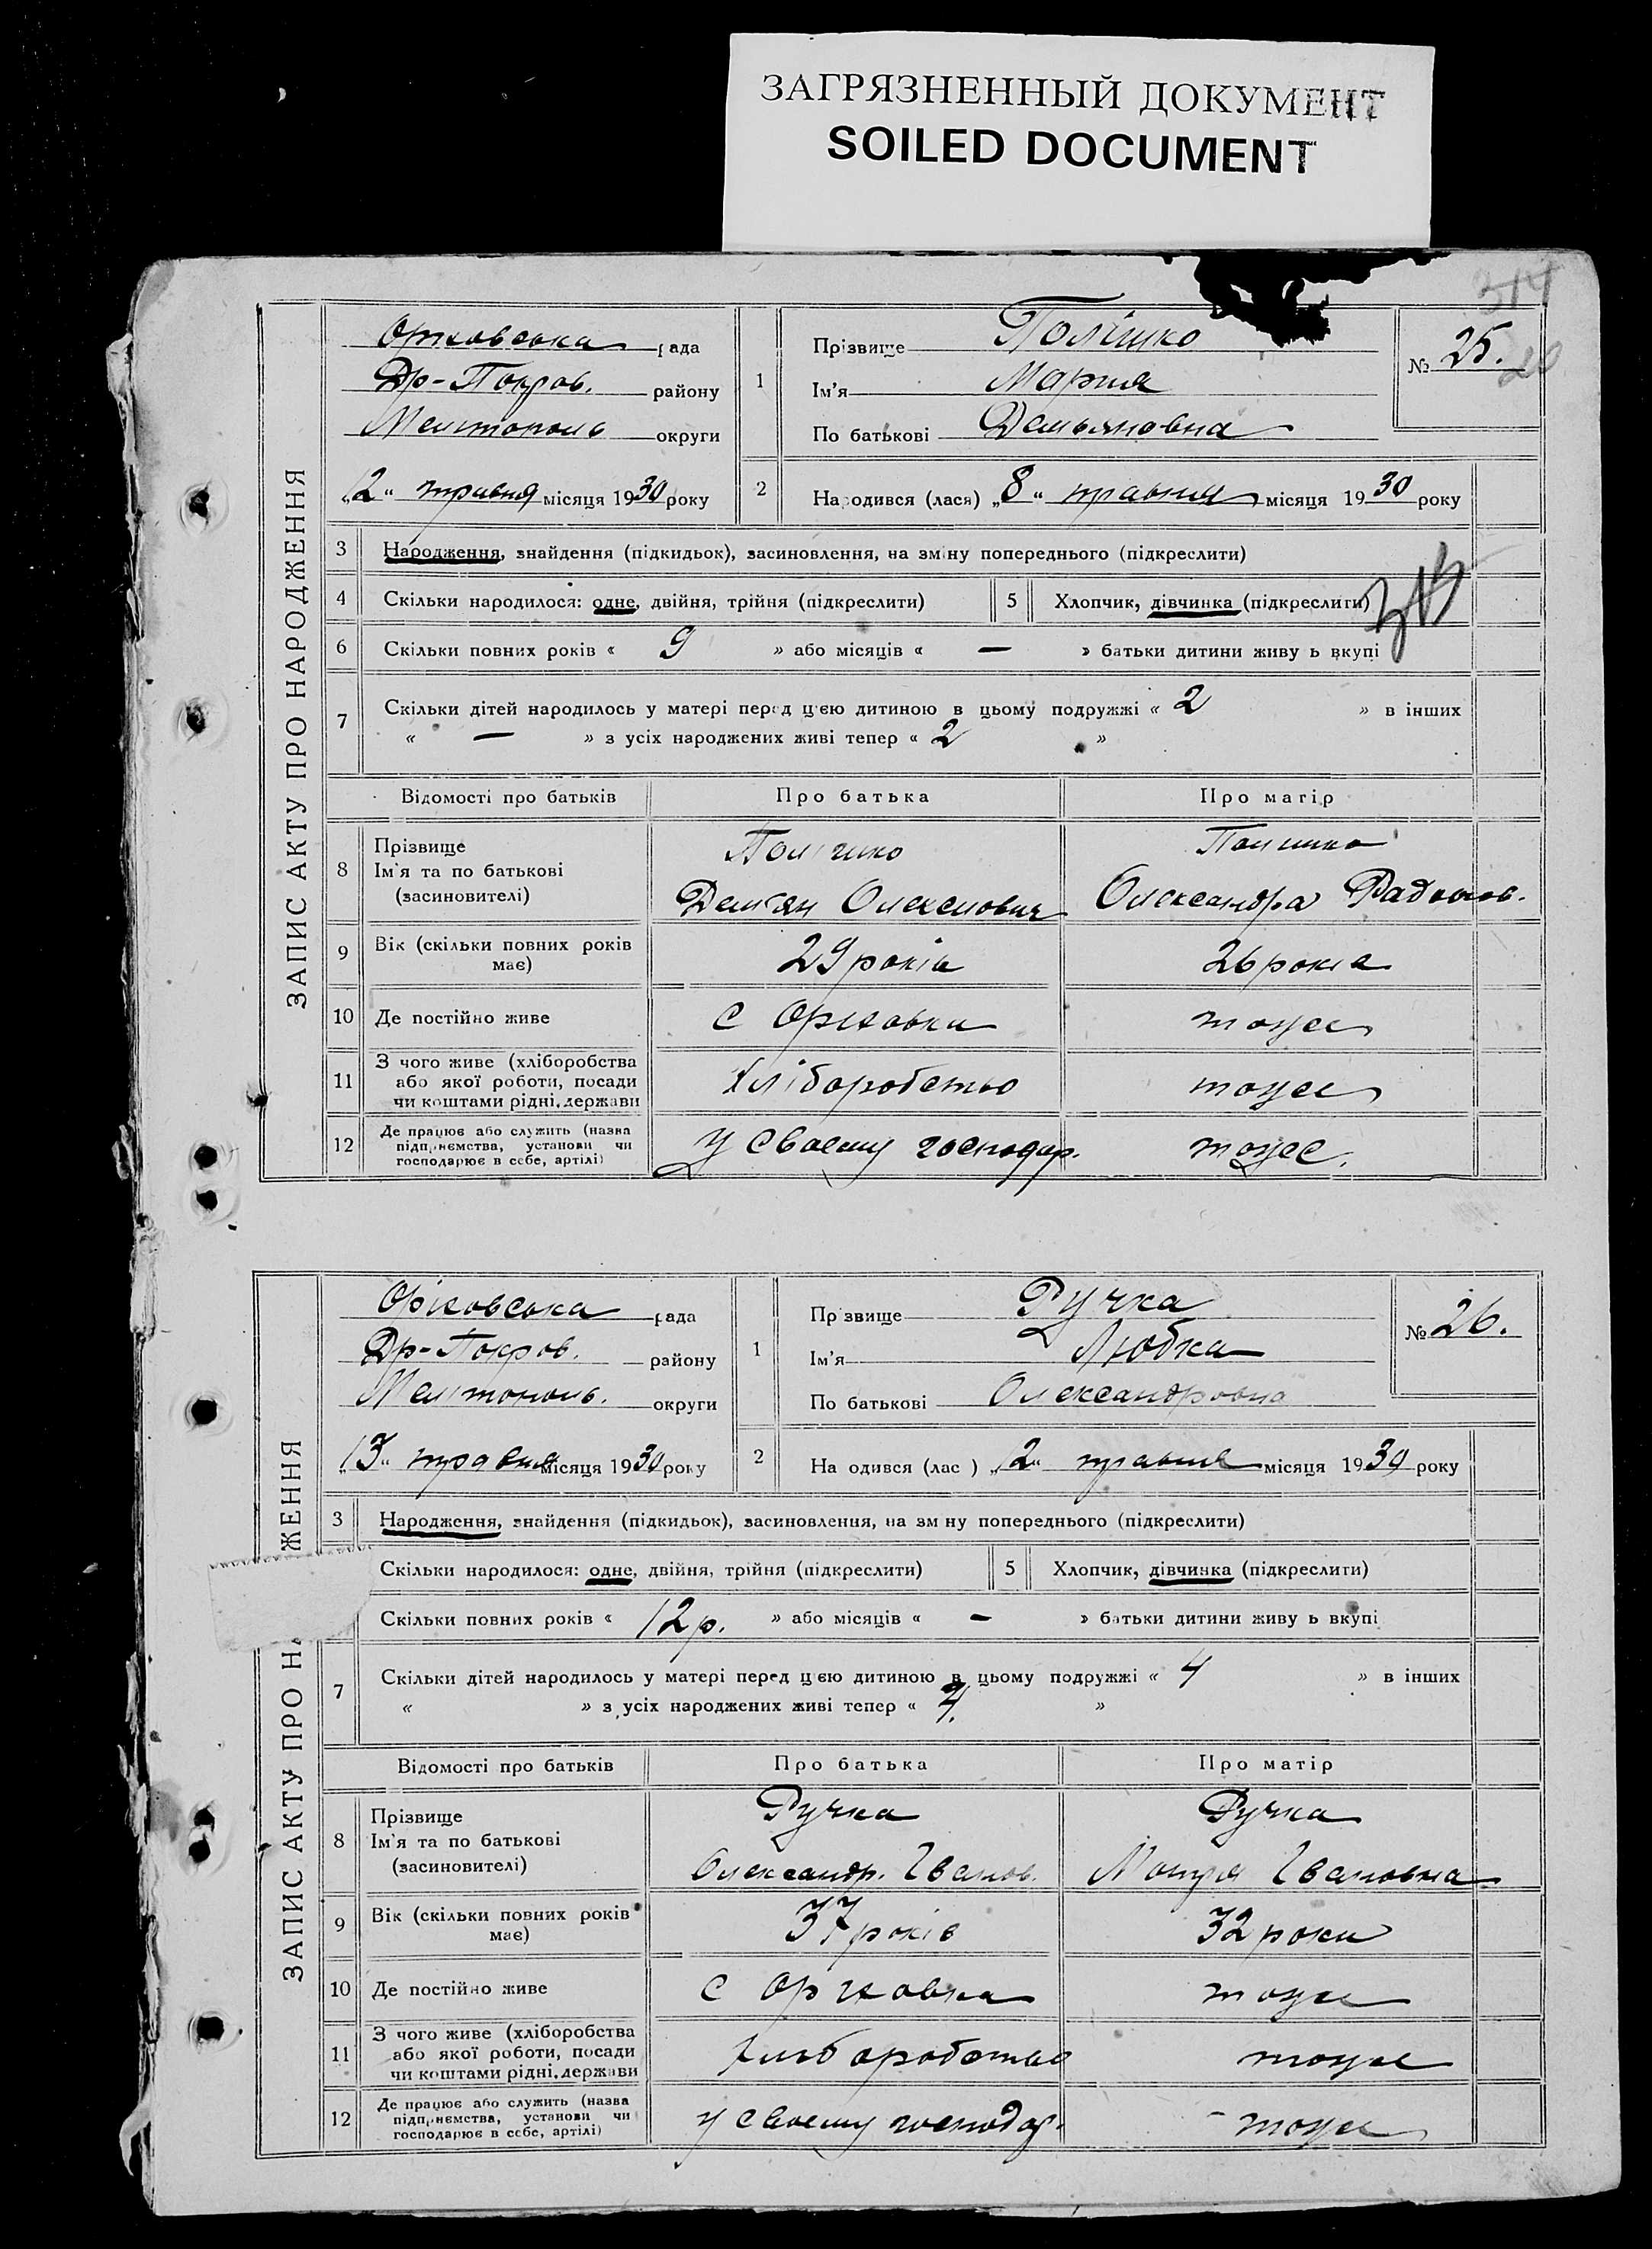 ЗАГРЯЗНЕННЫЙ ДОКУМЕНТ
SOILED DOCUMENT
314
20
ЗАПИС АКТУ ПРО НАРОДЖЕННЯ
Оріховська рада
Др-Покров. району
Мелітополь округи
„12“ травня місяця 1930 року
1
Прізвище Полішко
Ім'я Мария
По батькові Демьяновна
№ 25.
2
Народився (лася) „8“ травня місяця 1930 року
3 Народження, знайдення (підкидьок), засиновлення, на зміну попереднього (підкреслити)
4 Скільки народилося: одне, двійня, трійня (підкреслити) 5 Хлопчик, дівчинка (підкреслити)
6 Скільки повних років « 9 » або місяців « — » батьки дитини живуть вкупі
7 Скільки дітей народилось у матері перед цією дитиною в цьому подружжі « 2 » в інших
« — » з усіх народжених живі тепер « 2 »
Відомості про батьків Про батька Про матір
8 Прізвище
Ім'я та по батькові
(засновителі)
Полішко
Дем'ян Олексиович
Полишко
Олександра
9 Вік (скільки повних років має) 29 років 26 років
10 Де постійно живе с Оріховка тоже
11 З чого живе (хліборобства
або якої роботи, посади
чи коштами рідні, держави
хліборобство тоже
12 Де працює або служить (назва
підприємства, установи чи
господарює в себе, артілі)
у своєму господар. тоже.
ЗАПИС АКТУ ПРО НА ЖЕННЯ
Оріховська рада
Др-Покров. району
Мелітополь. округи
„13“ травня місяця 1930 року
1
Прізвище Ручка
Ім'я Любка
По батькові Олександровна
№ 26.
2
На одився (лас ) „12“ травня місяця 1930 року
3 Народження, знайдення (підкидьок), засиновлення, на зм ну попереднього (підкреслити)
Скільки народилося: одне, двійня, трійня (підкреслити) 5 Хлопчик, дівчинка (підкреслити)
Скільки повних років « 12 р. » або місяців « — » батьки дитини живу ь вкупі
7 Скільки дітей народилось у матері перед цією дитиною в цьому подружжі « 4 » в інших
« » з усіх народжених живі тепер « 4. »
Відомості про батьків Про батька Про матір
8 Прізвище
Ім'я та по батькові
(засиновителі)
Ручка
Олександр. Іванов.
Ручка
Мотря Івановна
9 Вік (скільки повних років має) 37 років 32 роки
10 Де постійно живе с Оріховка тоже
11 З чого живе (хліборобства
або якої роботи, посади
чи коштами рідні, держави
хліборобство тоже
12 Де працює або служить (назва
підприємства, установи чи
господарює в себе, артілі)
у своєму господар. тоже